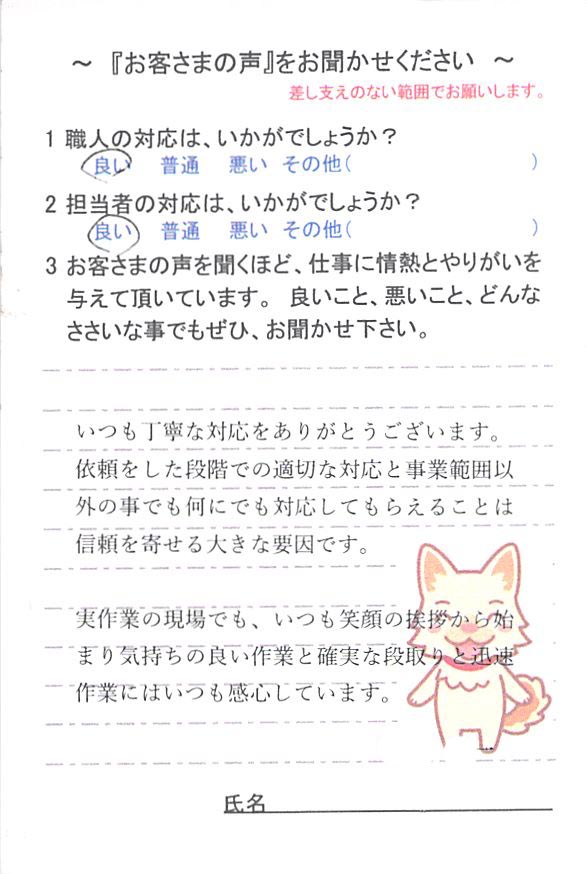 ～ 『お客さまの声』をお聞かせください ～
差し支えのない範囲でお願いします。
1 職人の対応は、いかがでしょうか？
良い 普通 悪い その他( )
2 担当者の対応は、いかがでしょうか？
良い 普通 悪い その他( )
3 お客さまの声を聞くほど、仕事に情熱とやりがいを
与えて頂いています。 良いこと、悪いこと、どんな
ささいな事でもぜひ、お聞かせ下さい。
いつも丁寧な対応をありがとうございます。
依頼をした段階での適切な対応と事業範囲以
外の事でも何にでも対応してもらえることは
信頼を寄せる大きな要因です。
実作業の現場でも、いつも笑顔の挨拶から始
まり気持ちの良い作業と確実な段取りと迅速
作業にはいつも感心しています。
氏名